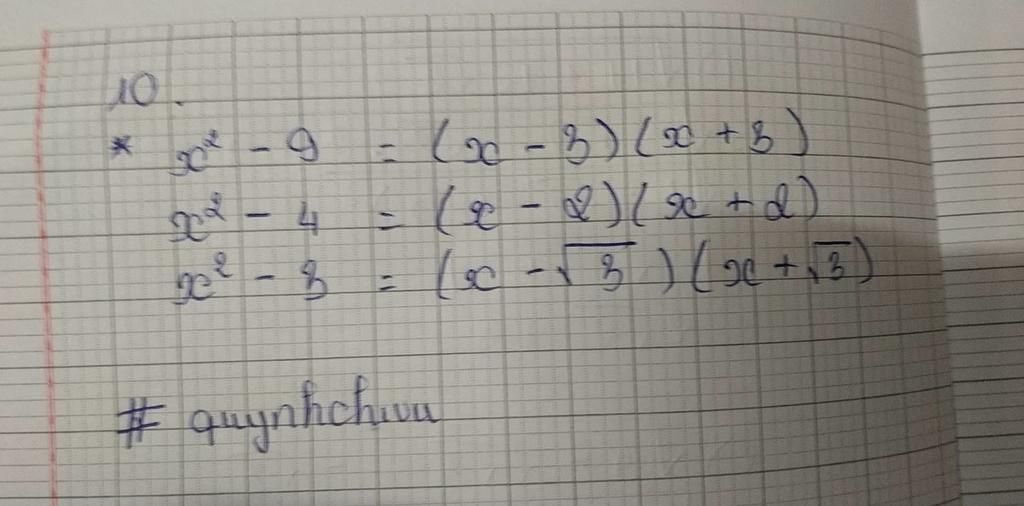 10.
* x² - 9 = (x - 3)(x + 3)
x² - 4 = (x - 2)(x + 2)
x² - 3 = (x - √3)(x + √3)
# quynhchivu